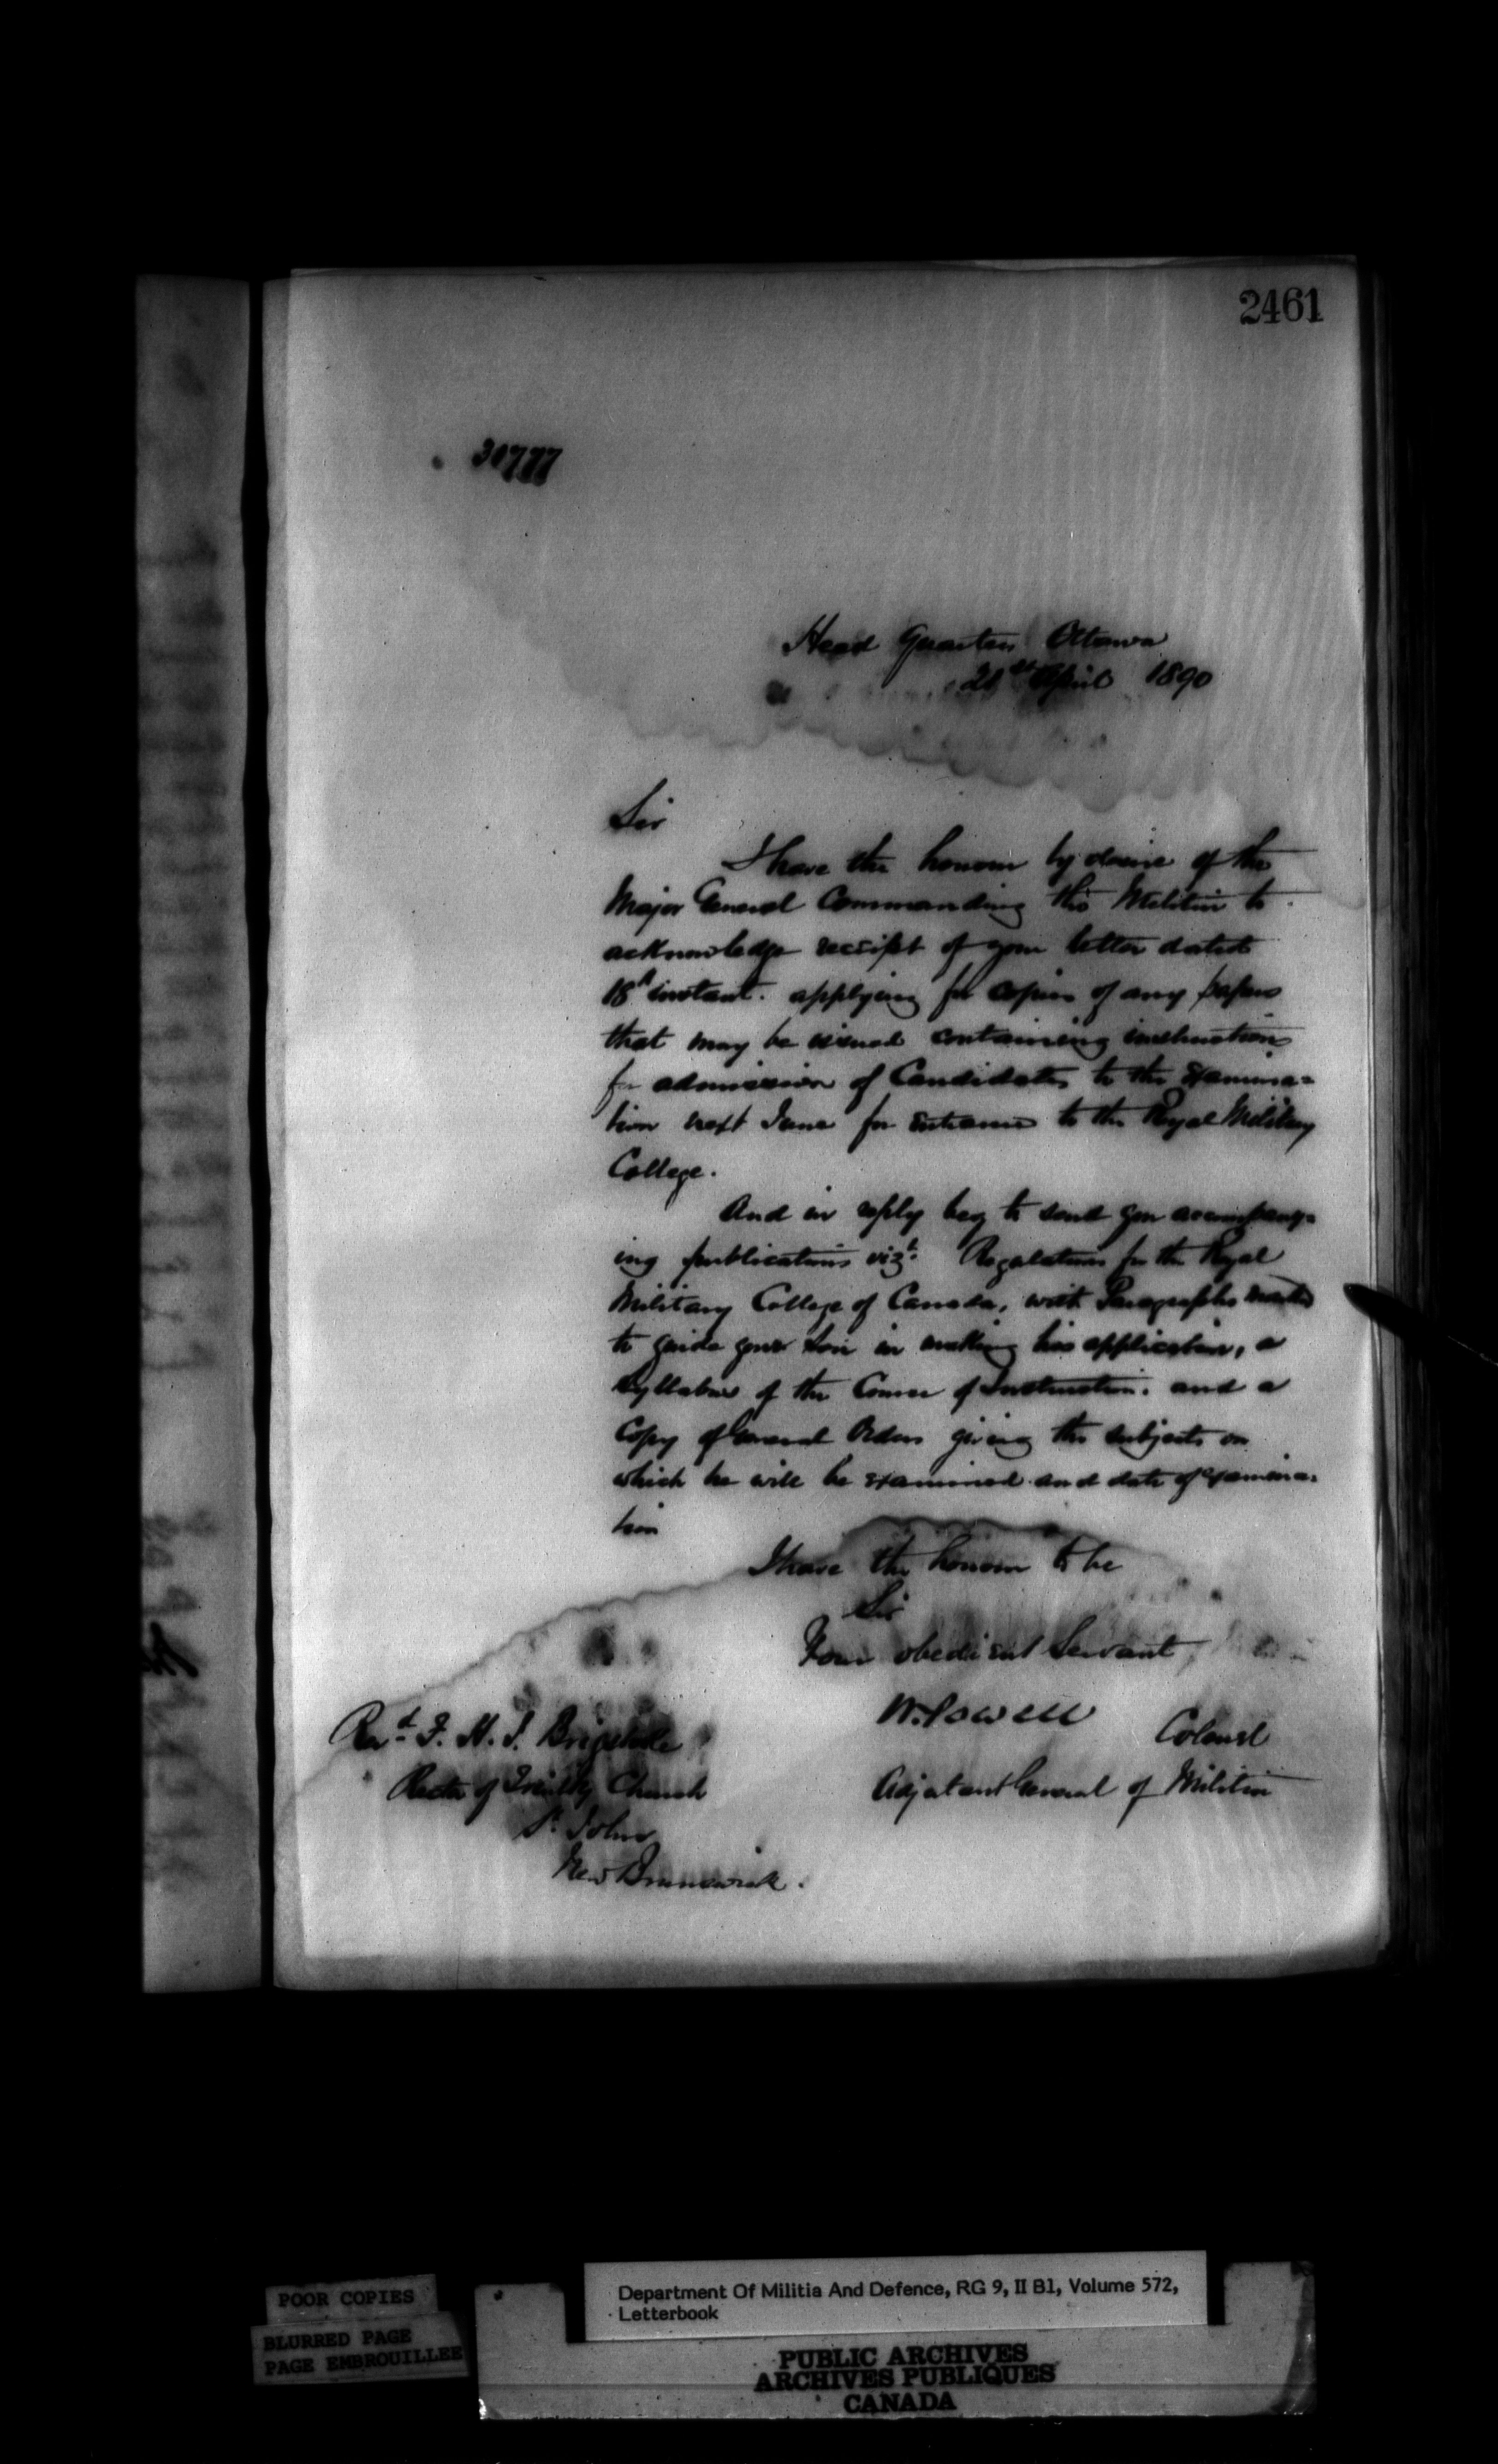 2461
30777
Head Quarters Ottawa
21st April 1890
Sir
I have the honour by desire of the
Major General Commanding the Militia to
acknowledge receipt of your letter dated
18th instant. applying for copies of any papers
that may be issued containing instructions
for admission of Candidates to the Examina=
tion next June for entrance to the Royal Military
College.
And in reply beg to send you accompany=
ing publications vizt: Regulations for the Royal
Military College of Canada, with Paragraphs marked
to guide your Son in making his application, a
Syllabus of the Course of Instruction. and a
Copy of General Orders giving the subjects on
which he will be examined and date of Examina=
tion
I have the honour to be
Sir
Your obedient Servant
W. Powell
Colonel
Adjutant General of Militia
Revd. F. H. J. Brigstocke
Rector of Trinity Church
St. John
New Brunswick.
POOR COPIES
BLURRED PAGE
PAGE EMBROUILLEE
Department Of Militia And Defence, RG 9, II B1, Volume 572,
Letterbook
PUBLIC ARCHIVES
ARCHIVES PUBLIQUES
CANADA